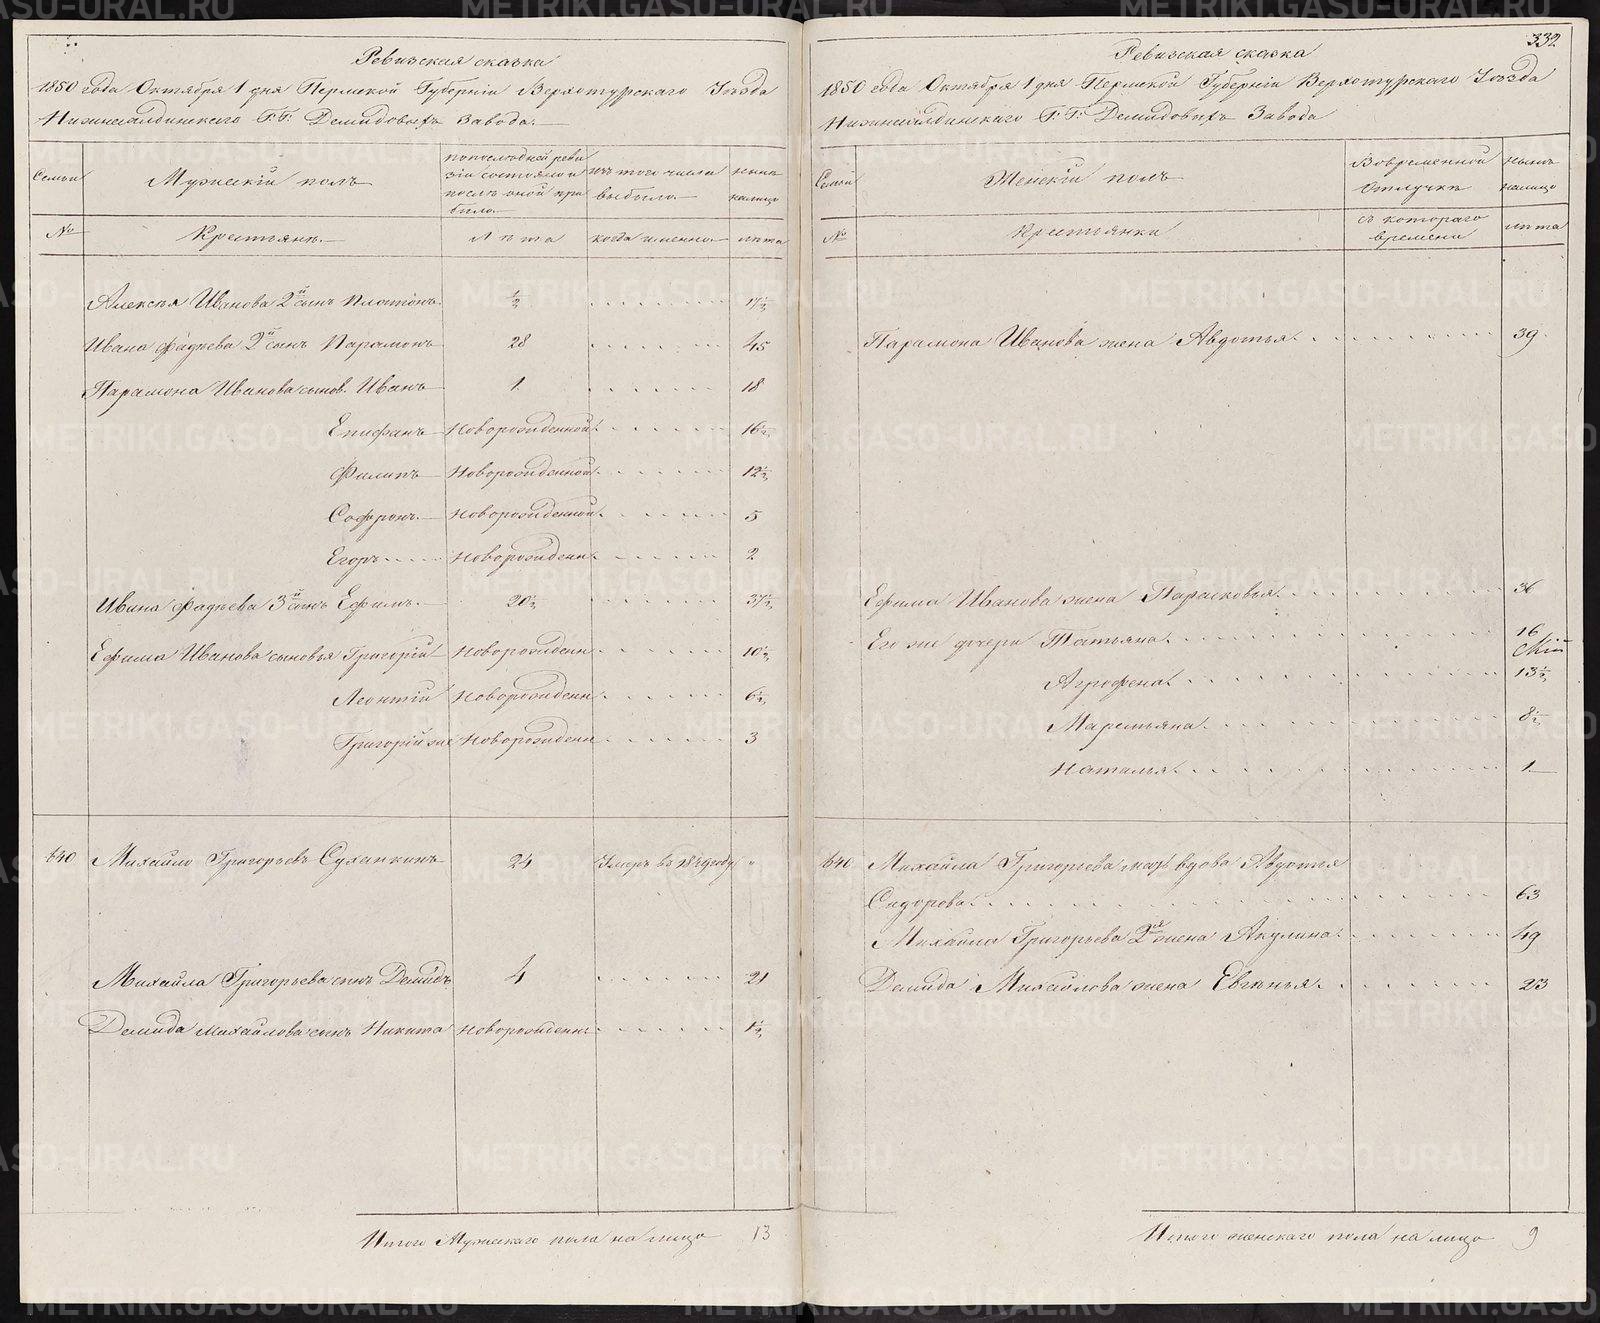 Ревизская сказка
1850 года Октября 1 дня Пермской Губерніи Верхотурскаго Уѣзда
Нижнесалдинскаго Г.Г. Демидовыхъ Завода.
Семьи
Мужескій полъ
по послѣдней реви
зіи состояло и
послѣ оной при
было.
изъ того числа
выбыло.
нынѣ
налицо
№
Крестьянъ.
Лѣта
когда именно.
лѣта
Алексѣя Иванова 2й сынъ Платонъ. ½ 17½
Ивана Фадѣева 2й сынъ Парамонъ 28 45
Парамона Иванова сынов. Иванъ 1 18
Епифанъ Новорожденной 16½
Филипъ Новорожденной 12½
Софронъ. Новорожденной 5
Егоръ Новорожденн. 2
Ивана Фадѣева 3й сынъ Ефимъ. 20½ 37½
Ефима Иванова сыновья Григорій Новорожденн 10½
Леонтій Новорожденн 6½
Григорій же Новорожденн 3
640 Михайло Григорьевъ Суханкинъ 24 Умеръ въ 1849 году "
Михайла Григорьева сынъ Демидъ 4 21
Демида Михайлова сынъ Никита Новорожденн. 1½
Итого Мужескаго пола на лицо 13
332
Ревизская сказка
1850 года Октября 1 дня Пермской Губерніи Верхотурскаго Уѣзда
Нижнесалдинскаго Г.Г. Демидовыхъ Завода
Семьи
Женскій полъ
Во временной
отлучкѣ
нынѣ
налицо
№
Крестьянки
съ котораго
времени
лѣта
Парамона Иванова жена Авдотья 39
Ефима Иванова жена Парасковья 36
Его же дочери Татьяна 16
Агрофена 13½
Маремьяна 8½
Наталья 1
640 Михайла Григорьева мать вдова Авдотья
Сидорова 63
Михайла Григорьева 2я жена Акулина 49
Демида Михайлова жена Евгѣнья 23
Итого женскаго пола на лицо 9
METRIKI.GASO-URAL.RU